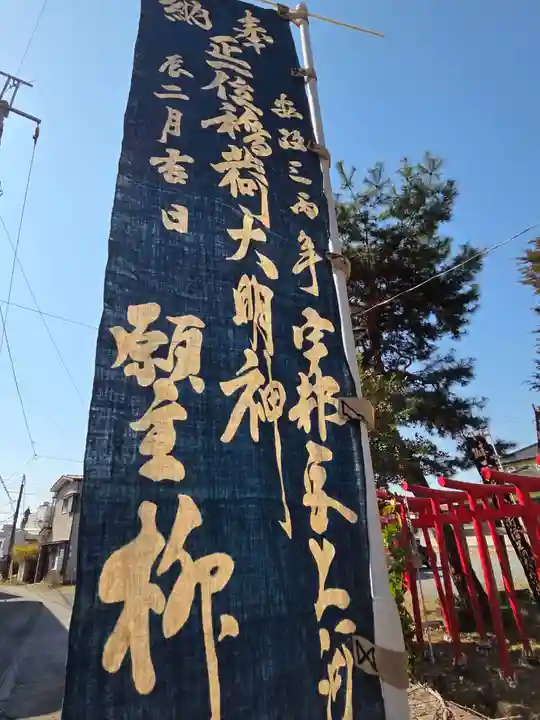 奉納
安政三丙年 宇都宮上河
正一位稲荷大明神
辰二月吉日
願主柳